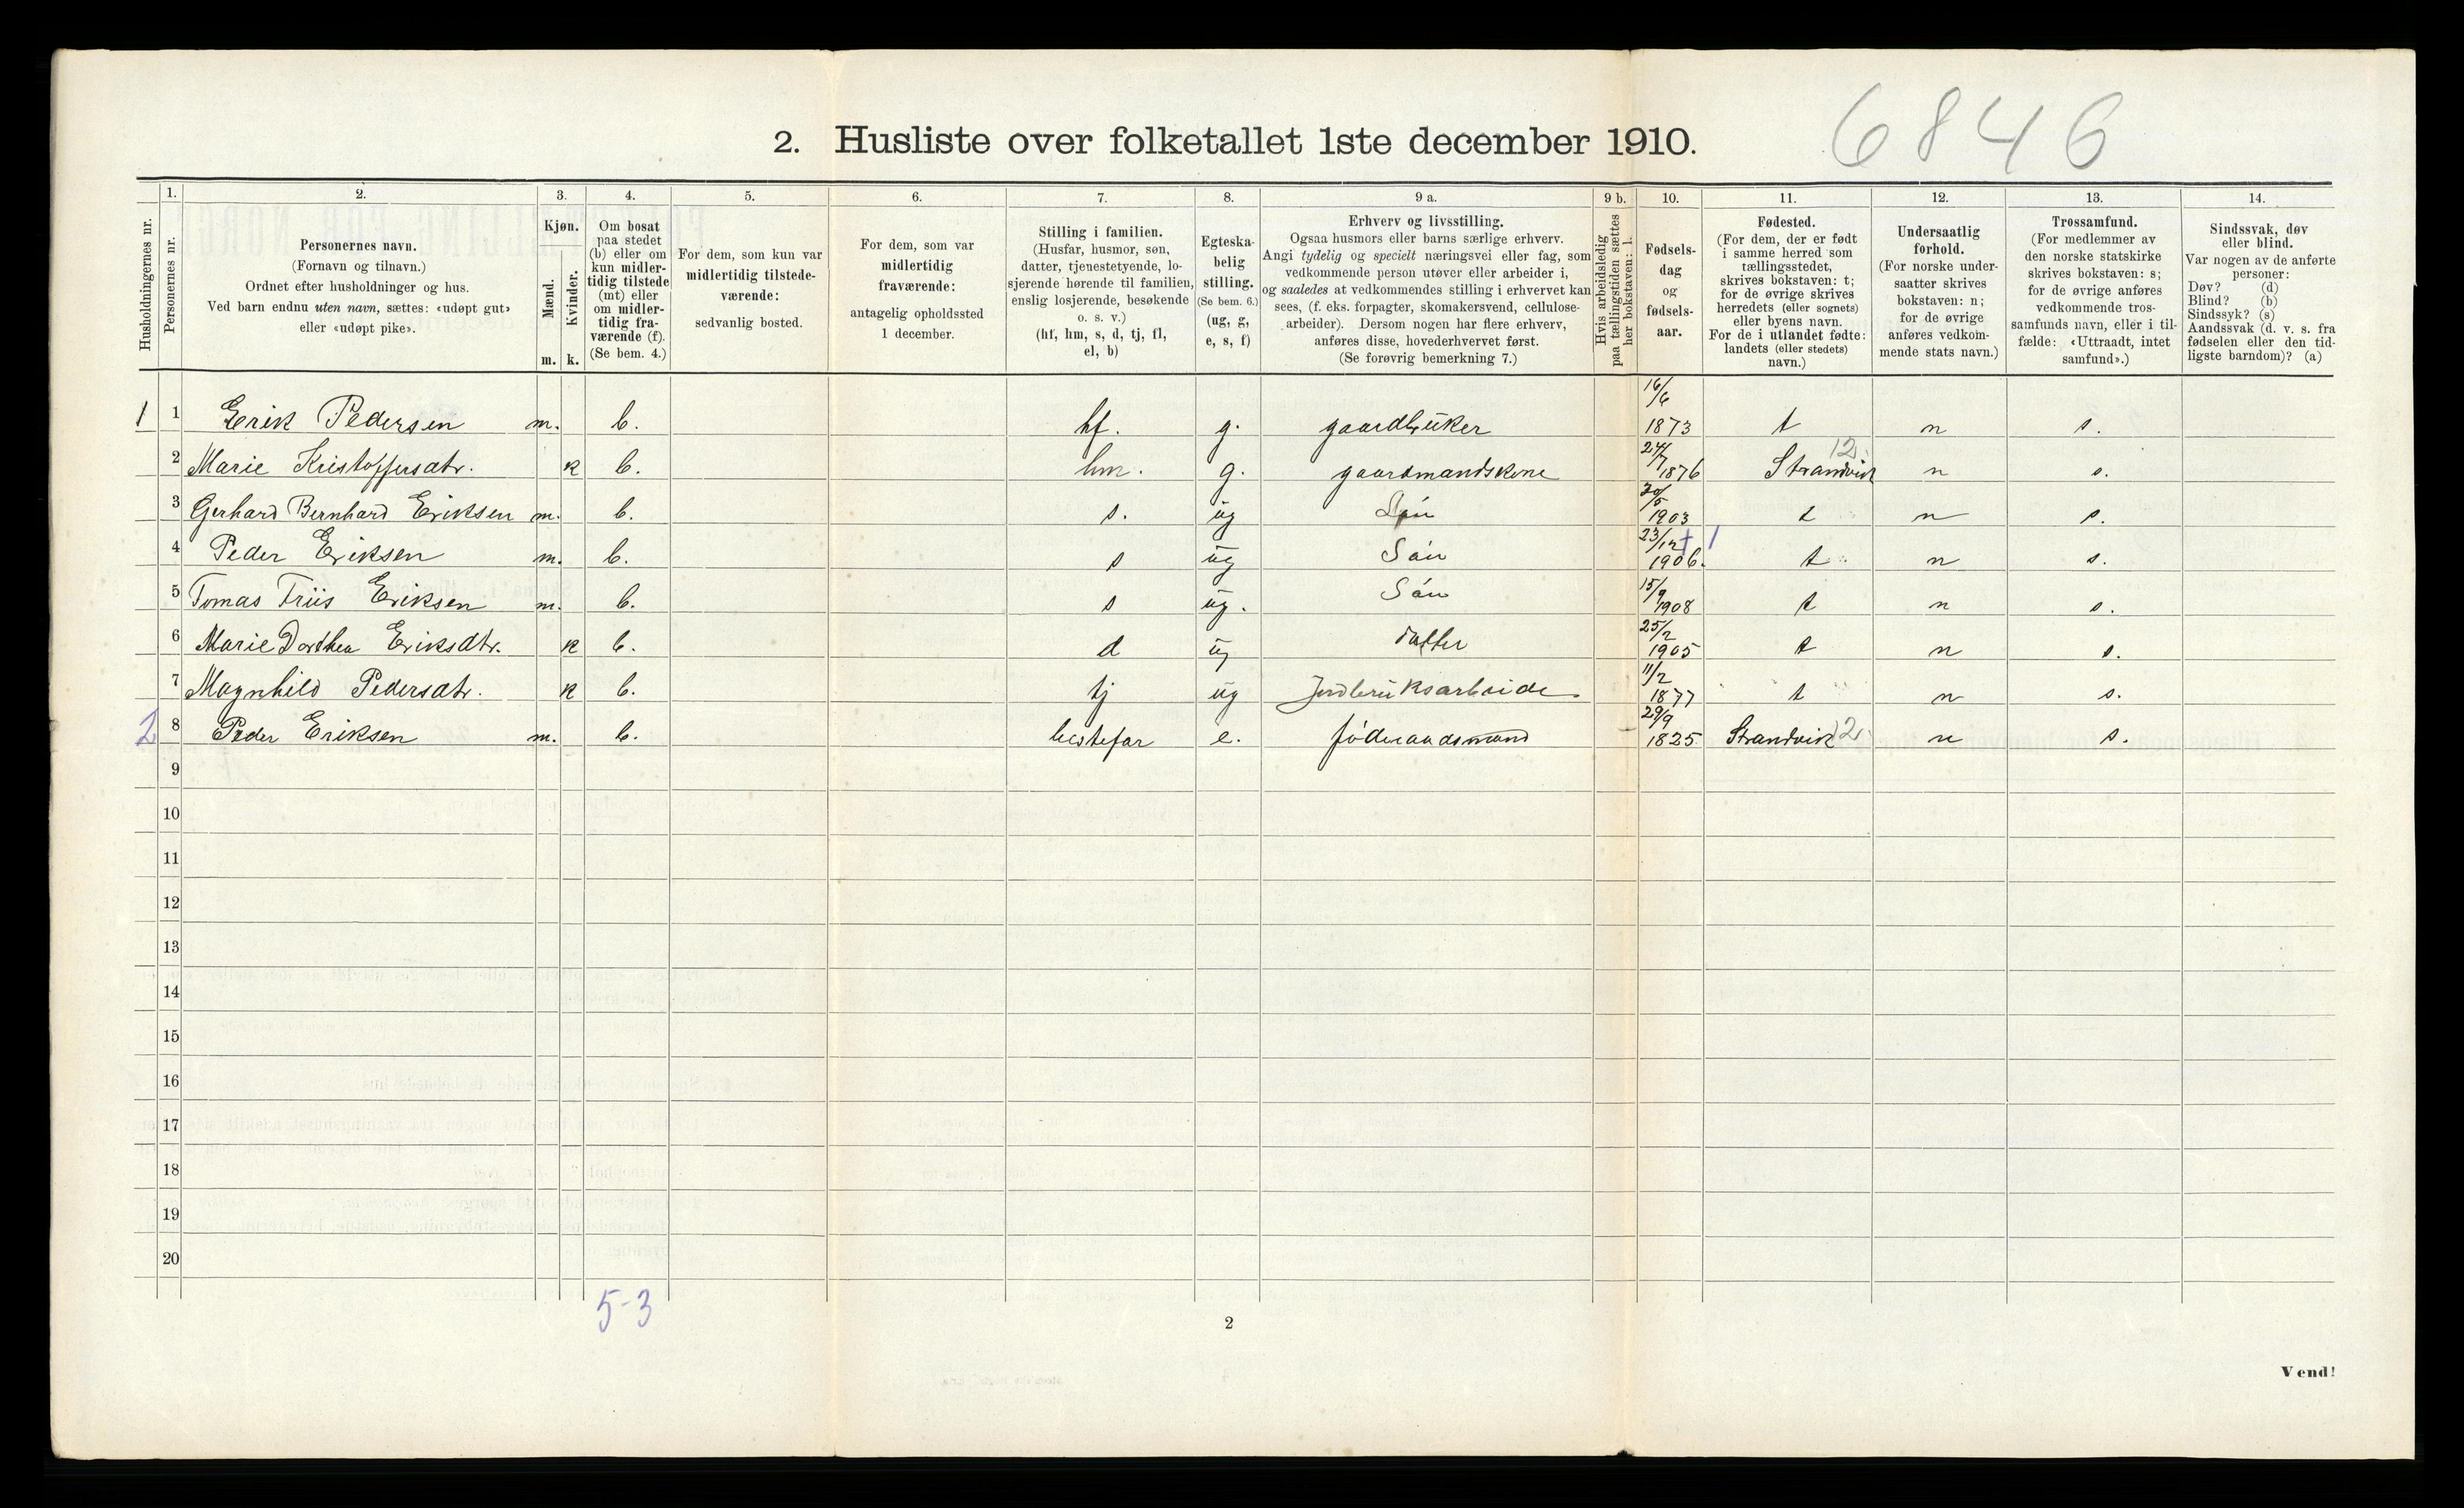 6846
2. Husliste over folketallet 1ste december 1910.
Husholdningernes nr.
1.
Personernes nr.
2.
Personernes navn.
(Fornavn og tilnavn.)
Ordnet efter husholdninger og hus.
Ved barn endnu uten navn, sættes: «udøpt gut»
eller «udøpt pike».
3.
Kjøn.
Mænd.
m.
Kvinder.
k.
4.
Om bosat
paa stedet
(b) eller om
kun midler-
tidig tilstede
(mt) eller
om midler-
tidig fra-
værende (f).
(Se bem. 4.)
5.
For dem, som kun var
midlertidig tilstede-
værende:
sedvanlig bosted.
6.
For dem, som var
midlertidig
fraværende:
antagelig opholdssted
1 december.
7.
Stilling i familien.
(Husfar, husmor, søn,
datter, tjenestetyende, lo-
sjerende hørende til familien,
enslig losjerende, besøkende
o. s. v.)
(hf, hm, s, d, tj, fl,
el, b)
8.
Egteska-
belig
stilling.
(Se bem. 6.)
(ug, g,
e, s, f)
9 a.
Erhverv og livsstilling.
Ogsaa husmors eller barns særlige erhverv.
Angi tydelig og specielt næringsvei eller fag, som
vedkommende person utøver eller arbeider i,
og saaledes at vedkommendes stilling i erhvervet kan
sees, (f. eks. forpagter, skomakersvend, cellulose-
arbeider). Dersom nogen har flere erhverv,
anføres disse, hovederhvervet først.
(Se forøvrig bemerkning 7.)
9 b.
Hvis arbeidsledig
paa tællingstiden sættes
her bokstaven: l.
10.
Fødsels-
dag
og
fødsels-
aar.
11.
Fødested.
(For dem, der er født
i samme herred som
tællingsstedet,
skrives bokstaven: t;
for de øvrige skrives
herredets (eller sognets)
eller byens navn.
For de i utlandet fødte:
landets (eller stedets)
navn.)
12.
Undersaatlig
forhold.
(For norske under-
saatter skrives
bokstaven: n;
for de øvrige
anføres vedkom-
mende stats navn.)
13.
Trossamfund.
(For medlemmer av
den norske statskirke
skrives bokstaven: s;
for de øvrige anføres
vedkommende tros-
samfunds navn, eller i til-
fælde: «Uttraadt, intet
samfund».)
14.
Sindssvak, døv
eller blind.
Var nogen av de anførte
personer:
Døv? (d)
Blind? (b)
Sindssyk? (s)
Aandssvak (d. v. s. fra
fødselen eller den tid-
ligste barndom)? (a)
1 1 Erik Pedersen m. b. hf. g. gaardbruker 16/6 1873 t n s.
2 Marie Kristoffersdtr. k b. hm. g. gaardmandskone 24/7 1876 Strandvik 12. n s.
3 Gerhard Bernhard Eriksen m. b. s. ug Søn 20/5 1903 t n s.
4 Peder Eriksen m. b. s ug Søn 23/12 1906. + 1 t n s.
5 Tomas Friis Eriksen m. b. s ug. Søn 15/9 1908 t n s.
6 Marie Dorthea Eriksdtr. k b. d ug datter 25/2 1905 t n s.
7 Magnhild Pedersdtr. k b. tj ug Jordbruksarbeide 11/2 1877 t n s.
2 8 Peder Eriksen m. b. bestefar e. føderaadsmand 29/9 1825 Strandvik 12. n s.
9
10
11
12
13
14
15
16
17
18
19
20
5-3
2
Vend!